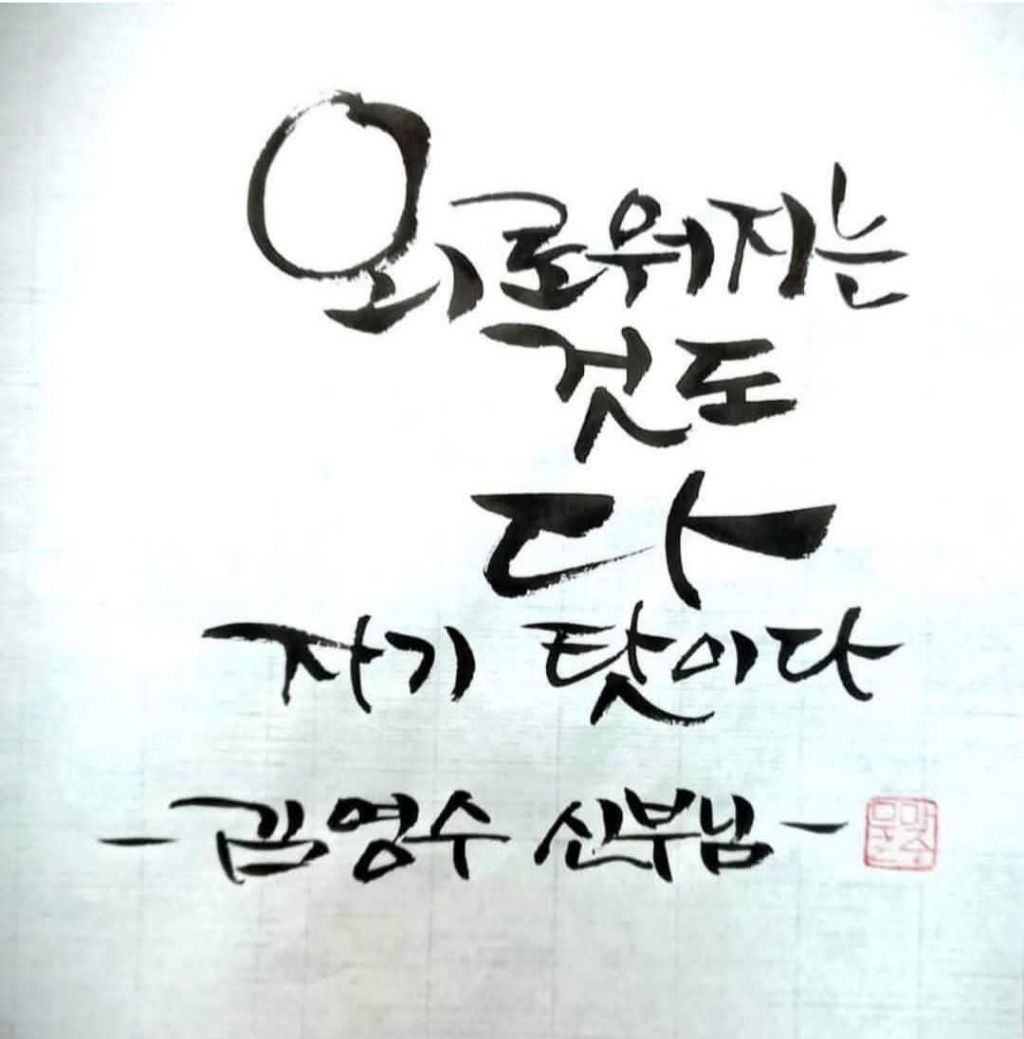 외로워지는
것도
다
자기 탓이다
- 김영수 신부님 -